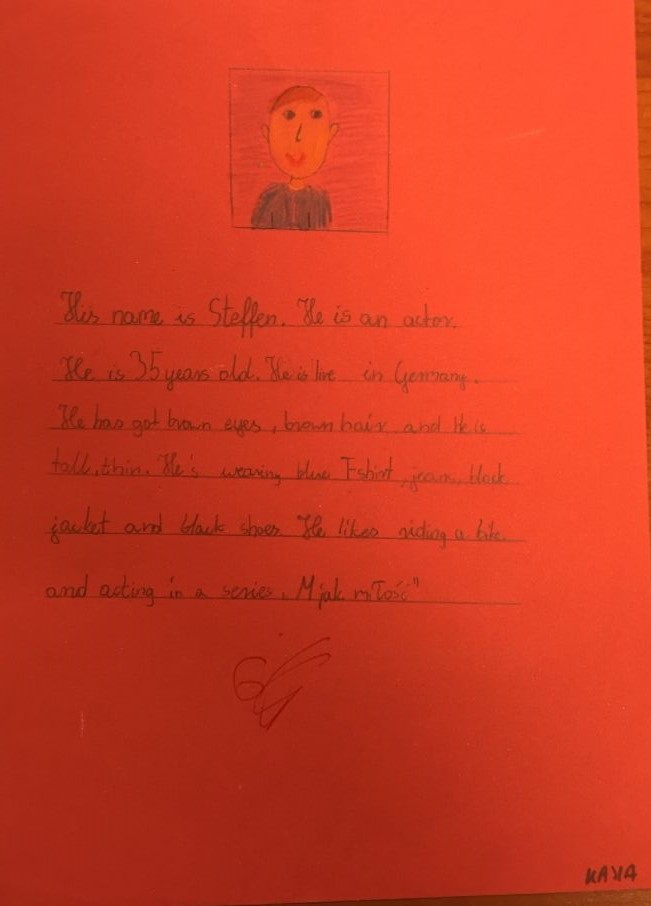 His name is Steffen. He is an actor.
He is 35 years old. He is live in Germany.
He has got brown eyes, brown hair and he is
tall, thin. He's wearing blue T-shirt, jeans, black
jacket and black shoes. He likes riding a bike
and acting in a series „M jak miłość"
KAYA